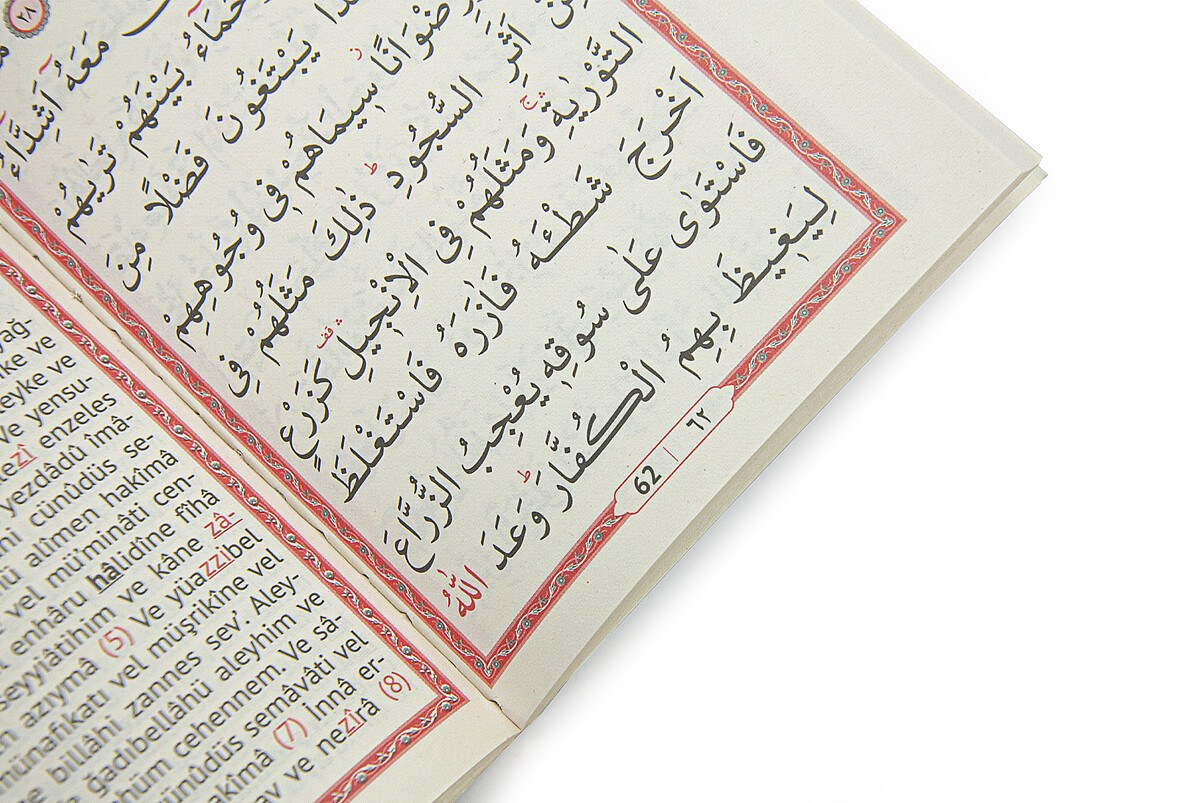 ٢٨
مَعَهُٓ اَشِدَّٓاءُ
بَيْنَهُمْ تَرٰيهُمْ
يَبْتَغُونَ فَضْلًا مِنَ
س۪يمَاهُمْ ف۪ي وُجُوهِهِمْ
اَثَرِ السُّجُودِ ذٰلِكَ مَثَلُهُمْ فِي
التَّوْرٰيةِ وَمَثَلُهُمْ فِي الْاِنْج۪يلِ كَزَرْعٍ
اَخْرَجَ شَطْـَٔهُ فَاٰزَرَهُ فَاسْتَغْلَظَ
فَاسْتَوٰى عَلٰى سُوقِه۪ يُعْجِبُ الزُّرَّاعَ
لِيَغ۪يظَ بِهِمُ الْكُفَّارَ وَعَدَ اللّٰهُ
62 | ٦٢
yağ-
ke ve
leyke ve
ve yensu-
ezî enzeles
yezdâdû îmâ-
cünûdüs se-
alîmen hakîmâ
vel mü'minâti cen-
enhâru hâlidîne fîhâ
seyyiâtihim ve kâne zâ-
azıymâ (5) Ve yüazzibel
münafıkatı vel müşrikîne vel
billâhi zannes sev'. Aley-
ğadıbellâhü aleyhim ve
hüm cehennem. Ve sâ-
ünûdüs semâvâti vel
akîmâ (7) İnnâ er-
ve nezîrâ (8)